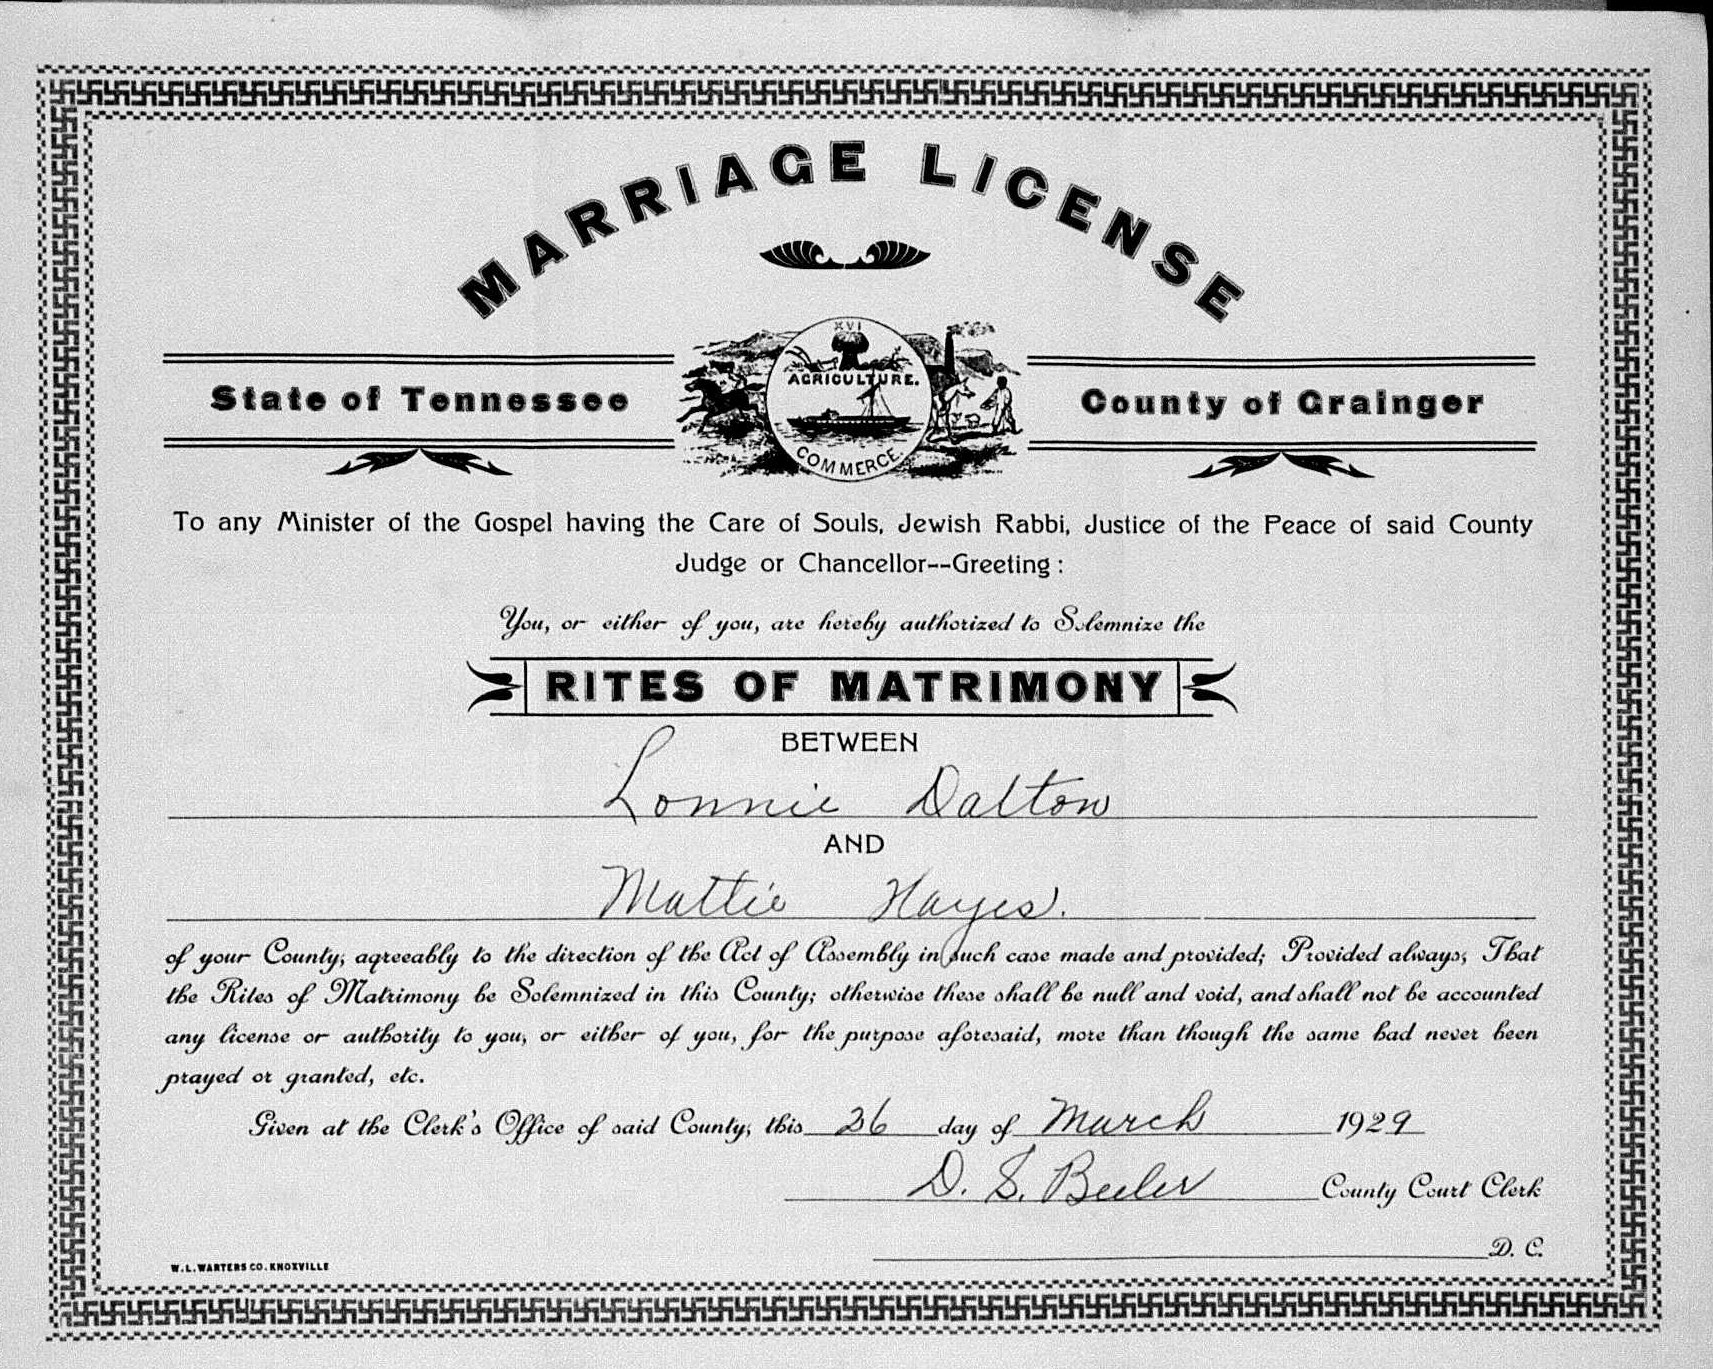 MARRIAGE LICENSE
XVI
AGRICULTURE.
COMMERCE
State of Tennessee
County of Grainger
To any Minister of the Gospel having the Care of Souls, Jewish Rabbi, Justice of the Peace of said County
Judge or Chancellor--Greeting:
You, or either of you, are hereby authorized to Solemnize the
RITES OF MATRIMONY
BETWEEN
Lonnie Dalton
AND
Mattie Hayes.
of your County, agreeably to the direction of the Act of Assembly in such case made and provided; Provided always, That
the Rites of Matrimony be Solemnized in this County; otherwise these shall be null and void, and shall not be accounted
any license or authority to you, or either of you, for the purpose aforesaid, more than though the same had never been
prayed or granted, etc.
Given at the Clerk's Office of said County, this 26 day of March 1929
D. S. Beeler County Court Clerk
D. C.
W.L. WARTERS CO. KNOXVILLE